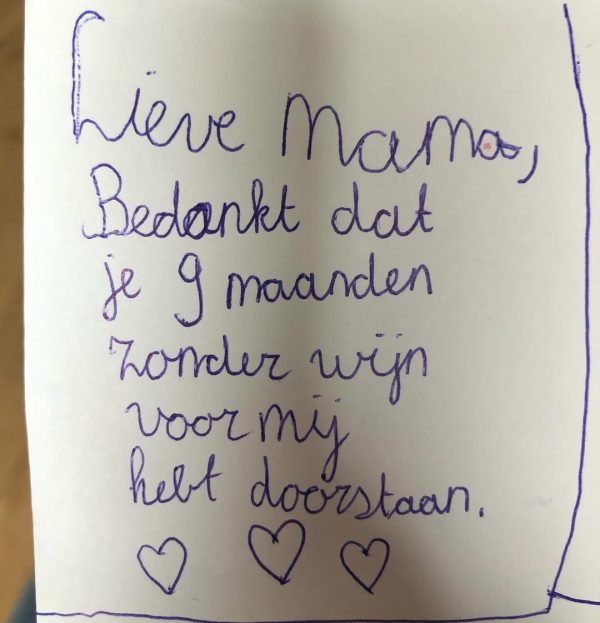 Lieve Mama,
Bedankt dat
je 9 maanden
zonder wijn
voor mij
hebt doorstaan.